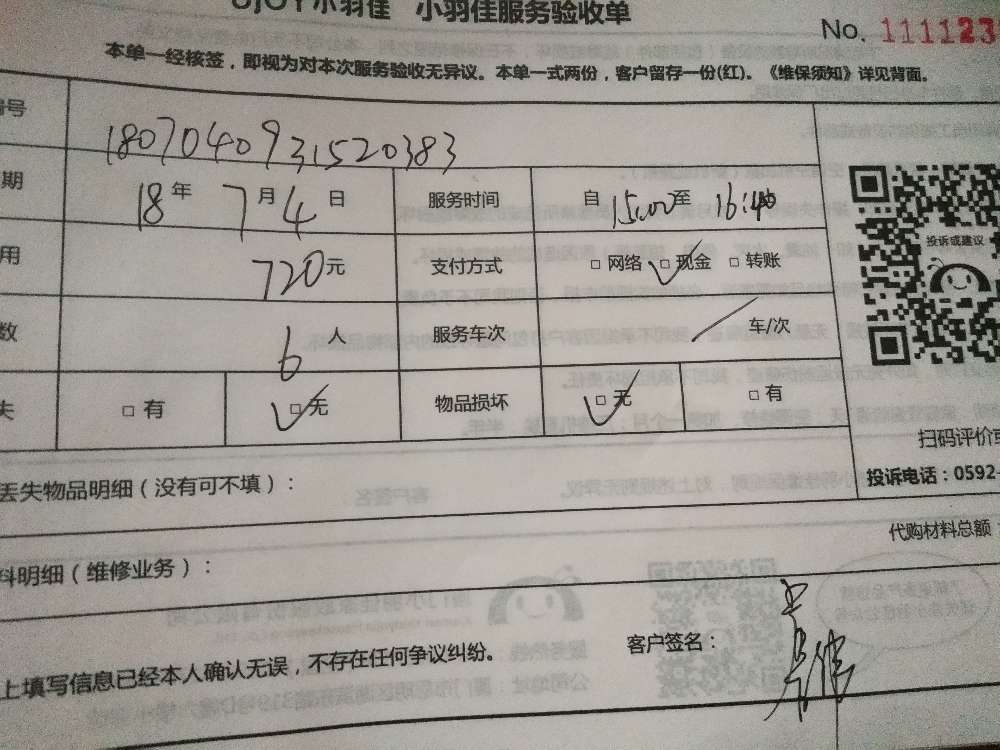 UJOY小羽佳 小羽佳服务验收单
No. 111123
本单一经核签，即视为对本次服务验收无异议。本单一式两份，客户留存一份(红)。《维保须知》详见背面。
号 180704093152038​3
期 18年 7月4日 服务时间 自15:00至16:40
用 720元 支付方式 □网络 ☑现金 □转账
数 6人 服务车次 / 车/次
失 □有 ☑无 物品损坏 ☑无 □有
投诉或建议
扫码评价或
投诉电话：0592-
丢失物品明细（没有可不填）：
代购材料总额
料明细（维修业务）：
上填写信息已经本人确认无误，不存在任何争议纠纷。 客户签名：